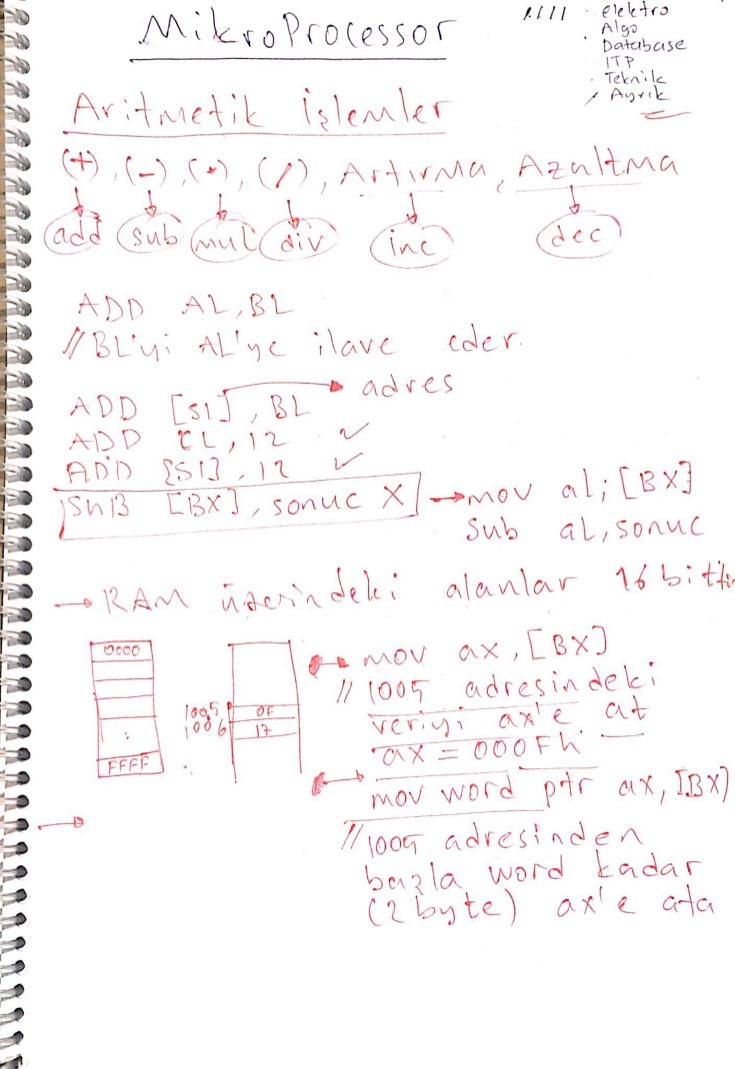 MikroProcessor
elektro
Algo
Database
ITP
Teknik
Ayrık
Aritmetik işlemler
(+), (-), (*), (/), Artırma, Azaltma
add sub mul div inc dec
ADD AL, BL
//BL'yi AL'ye ilave eder.
ADD [SI], BL → adres
ADD CL, 12 ✓
ADD [SI], 12 ✓
SUB [BX], sonuc X → mov al; [BX]
Sub al, sonuc
→ RAM üzerindeki alanlar 16 bittir
0000
FFFF
1005 0F
1006 17
mov ax, [BX]
// 1005 adresindeki
veriyi ax'e at
ax = 000Fh
mov word ptr ax, [BX]
// 1005 adresinden
başla word kadar
(2 byte) ax'e ata